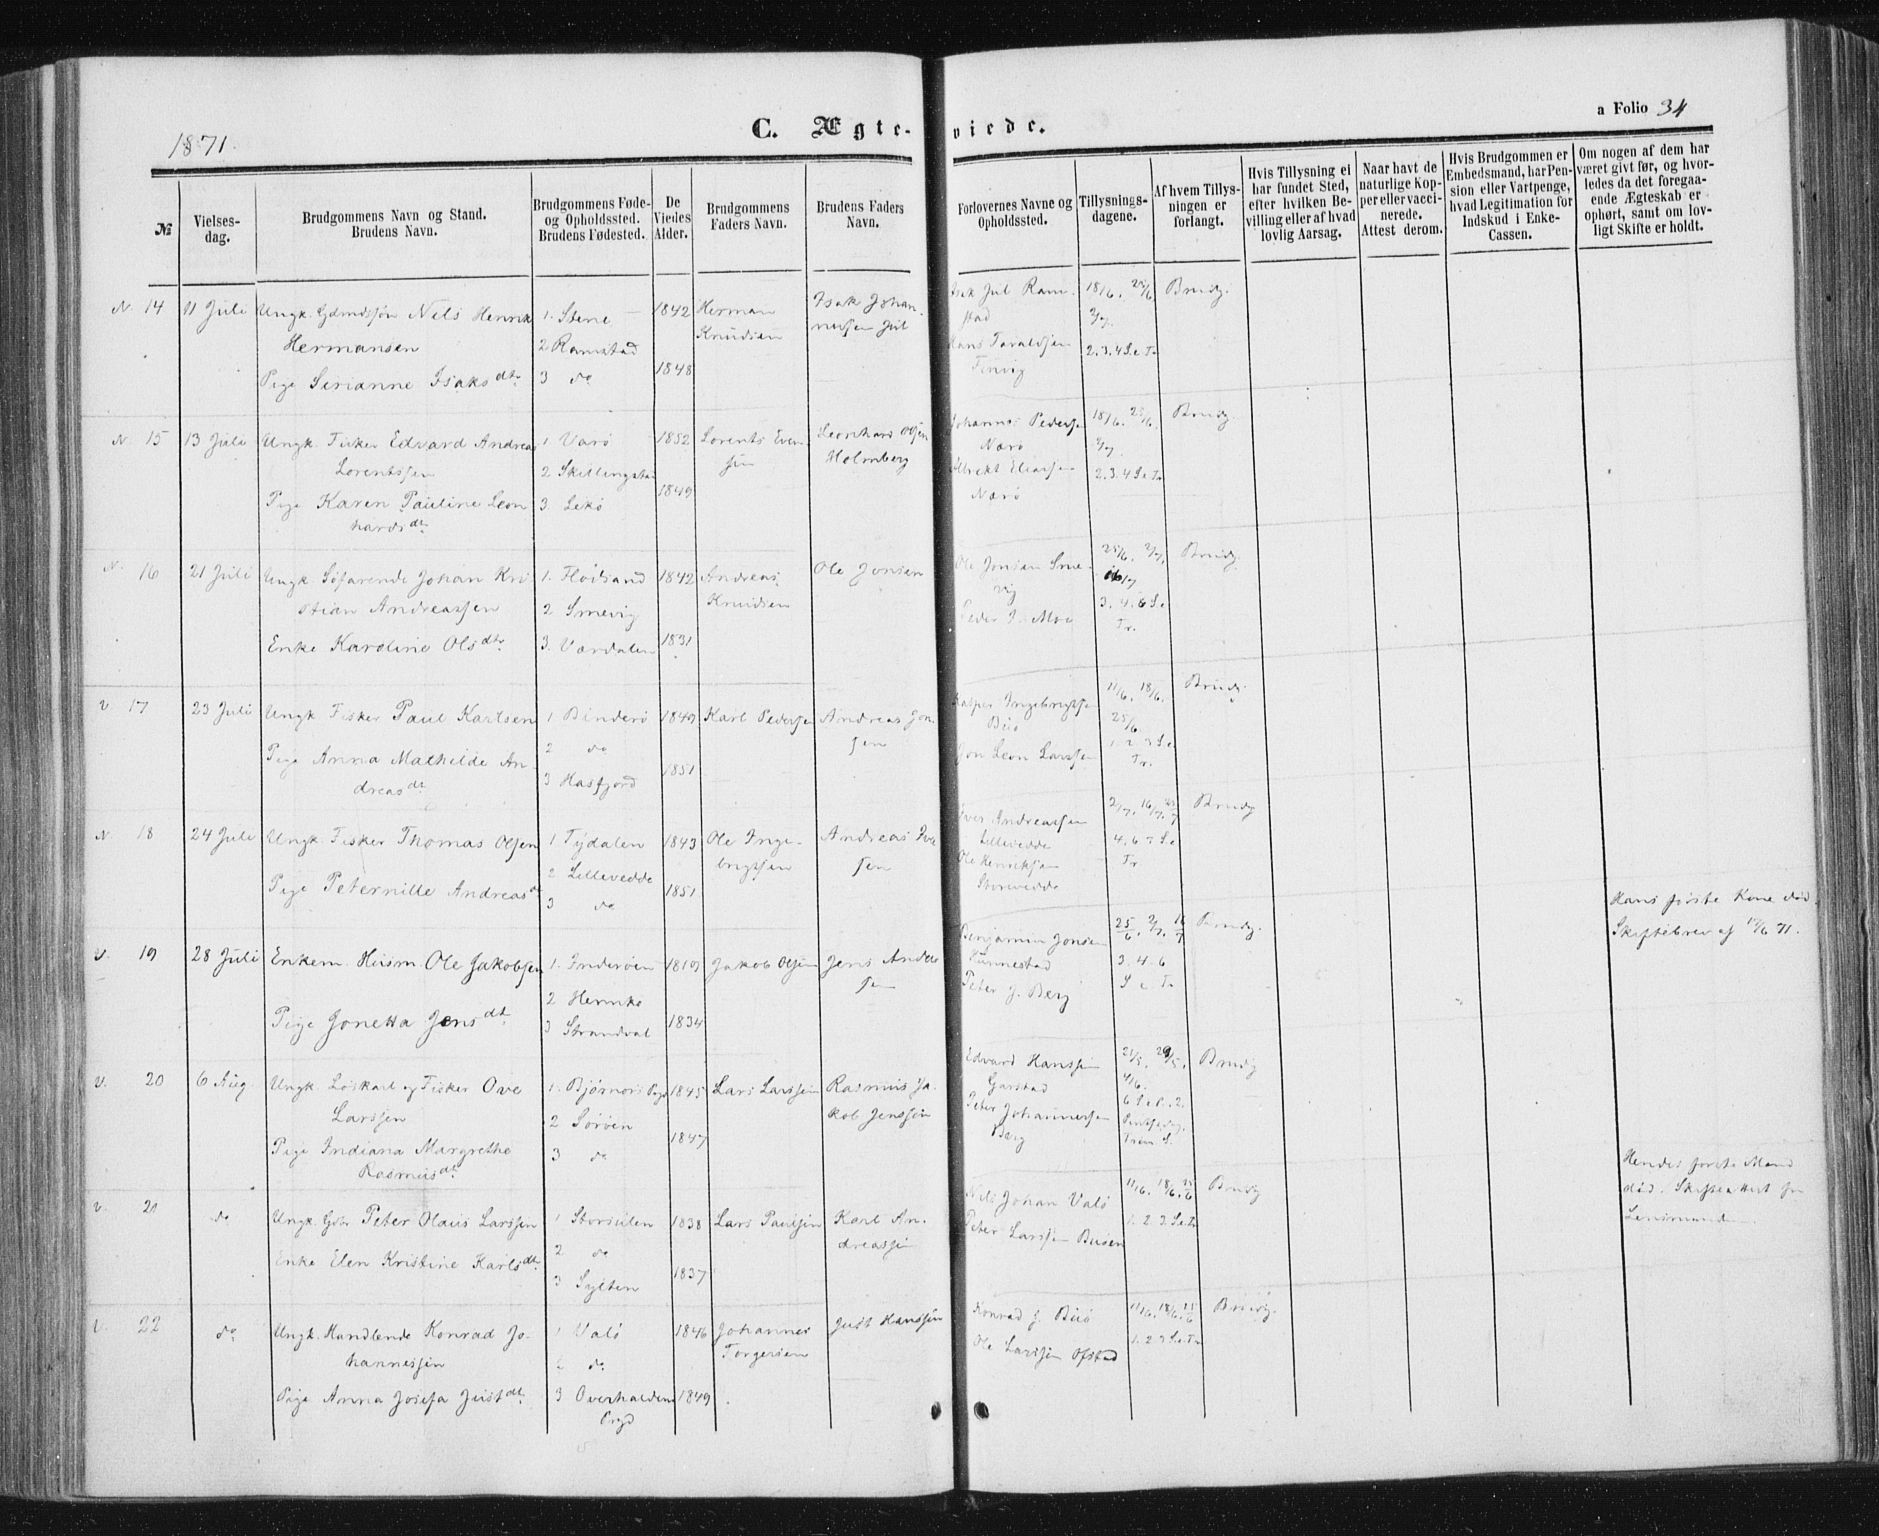 1871.
C. Ægte-viede.
a Folio 34
№
Vielses-dag.
Brudgommens Navn og Stand.
Brudens Navn.
Brudgommens Føde-
og Opholdssted.
Brudens Fødested.
De
Viedes
Alder.
Brudgommens
Faders Navn.
Brudens Faders
Navn.
Forlovernes Navne og
Opholdssted.
Tillysnings-
dagene.
Af hvem Tillys-
ningen er
forlangt.
Hvis Tillysning ei
har fundet Sted,
efter hvilken Be-
villing eller af hvad
lovlig Aarsag.
Naar havt de
naturlige Kop-
per eller vacci-
nerede.
Attest derom.
Hvis Brudgommen er
Embedsmand, har Pen-
sion eller Vartpenge,
hvad Legitimation for
Indskud i Enke-
Cassen.
Om nogen af dem har
været givt før, og hvor-
ledes da det foregaa-
ende Ægteskab er
ophørt, samt om lov-
ligt Skifte er holdt.
N. 14
11 Juli
Ungk. Gdmdssøn Nels Henrik
Hermansen
Pige Serianne Isaksdtr
1. Stene
2 Ramstad
3 do
1842
1848
Herman
Knudsen
Isak Johan-
nessen Jul
Isak Jul Ram-
stad
Hans Taraldsen
Finvig
18/6. 25/6
2/7.
2.3.4 S.e.Tr
Brudg.
N. 15
13 Juli
Ungk. Fisker Edvard Andreas
Lorentssen
Pige Karen Pauline Leon
hardsdtr
1 Varø
2 Skillingstad
3. Lekø
1852
1849
Lorents Even
sen
Leonhard Olsen
Holmberg
Johannes Pedersen
Nærø
Albrekt Eliassen
Nærø
18/6. 25/6.
2/7.
2.3.4 S.e.Tr.
Brudg.
N. 16
21 Juli
Ungk Søfarende Johan Kri
stian Andreassen
Enke Karoline Olsdtr
1. Flødsand
2 Smevig
3. Værdalen
1842
1831
Andreas
Knudsen
Ole Jonsen
Ole Jonsen Sme-
vig
Peder J. Moe
25/6. 2/7.
16/7
3.4.6 S.e
Tr.
Brudg.
V 17
23 Juli
Ungk Fisker Paul Karlsen
Pige Anna Mathilde An-
dreasdtr
1 Binderø
2 do
3 Hasfjord
1849
1851
Karl Pedersen
Andreas Jon
sen
Kasper Ingebrigtsen
Buø
Jon Leon Larssen
11/6. 18/6.
25/6
1 2 3 S.e.
Tr.
Brudg.
N 18
24 Juli
Ungk. Fisker Thomas Olsen
Pige Peternille Andreasdtr
1 Tydalen
2 Lillevedde
3 do
1843
1851
Ole Inge-
brigtsen
Andreas Iver
sen
Iver Andreassen
Lillevedde
Ole Henriksen
Storvedde
2/7. 16/7. 23/7
4.6 7 S.e
Tr
Brudg
V. 19
28 Juli
Enkem. Husm. Ole Jakobsen
Pige Jonetta Jensdtr
1. Inderøen
2
3 Strandval
1819
1834
Jakob Olsen
Jens Anders
sen
Benjamin Jonsen
Peter J. Berg
25/6. 2/7. 16/7
3.4.6
S e Tr
Brudg.
Hans første Kone død.
Skiftebrev af 17/6 71.
V. 20
6 Aug.
Ungk. Løskarl og Fisker Ove
Larssen
Pige Indiana Margrethe
Rasmusdtr
1. Bjørnørs Prgd
2 Sørøen
3 do
1845
1847
Lars Larssen
Rasmus Ja-
kob Jenssen
Edvard Hanssen
Garstad
Peter Johannessen
Berg
21/5. 29/5.
4/6.
6 S.e.P. 2.
Pintsedag.
Trem S.
Brudg
V. 21
do
Ungk. Gbr Peter Olaus Larssen
Enke Elen Kristine Karlsdtr
1 Storsulen
2 do
3 Sylten
1838
1837
Lars Paulsen
Karl An-
dreassen
Nils Johan Valø
Peter Larssen Buøen
11/6. 18/6. 25/6
1. 2 3. S.e.Tr
Brudg
Hendes første Mand
død. Skifteattest fra
Lensmanden.
V. 22
do
Ungk. Handlende Konrad Jo-
hannessen
Pige Anna Josefa Justdtr
1 Valø
2 do
3 Overhalden
Prgd
1846
1849
Johannes
Torgersen
Just Hanssen
Konrad J. Buø
Ole Larssen Ofstad
11/6. 18/6. 25/6
1. 2 3 S.e.Tr
Brudg.